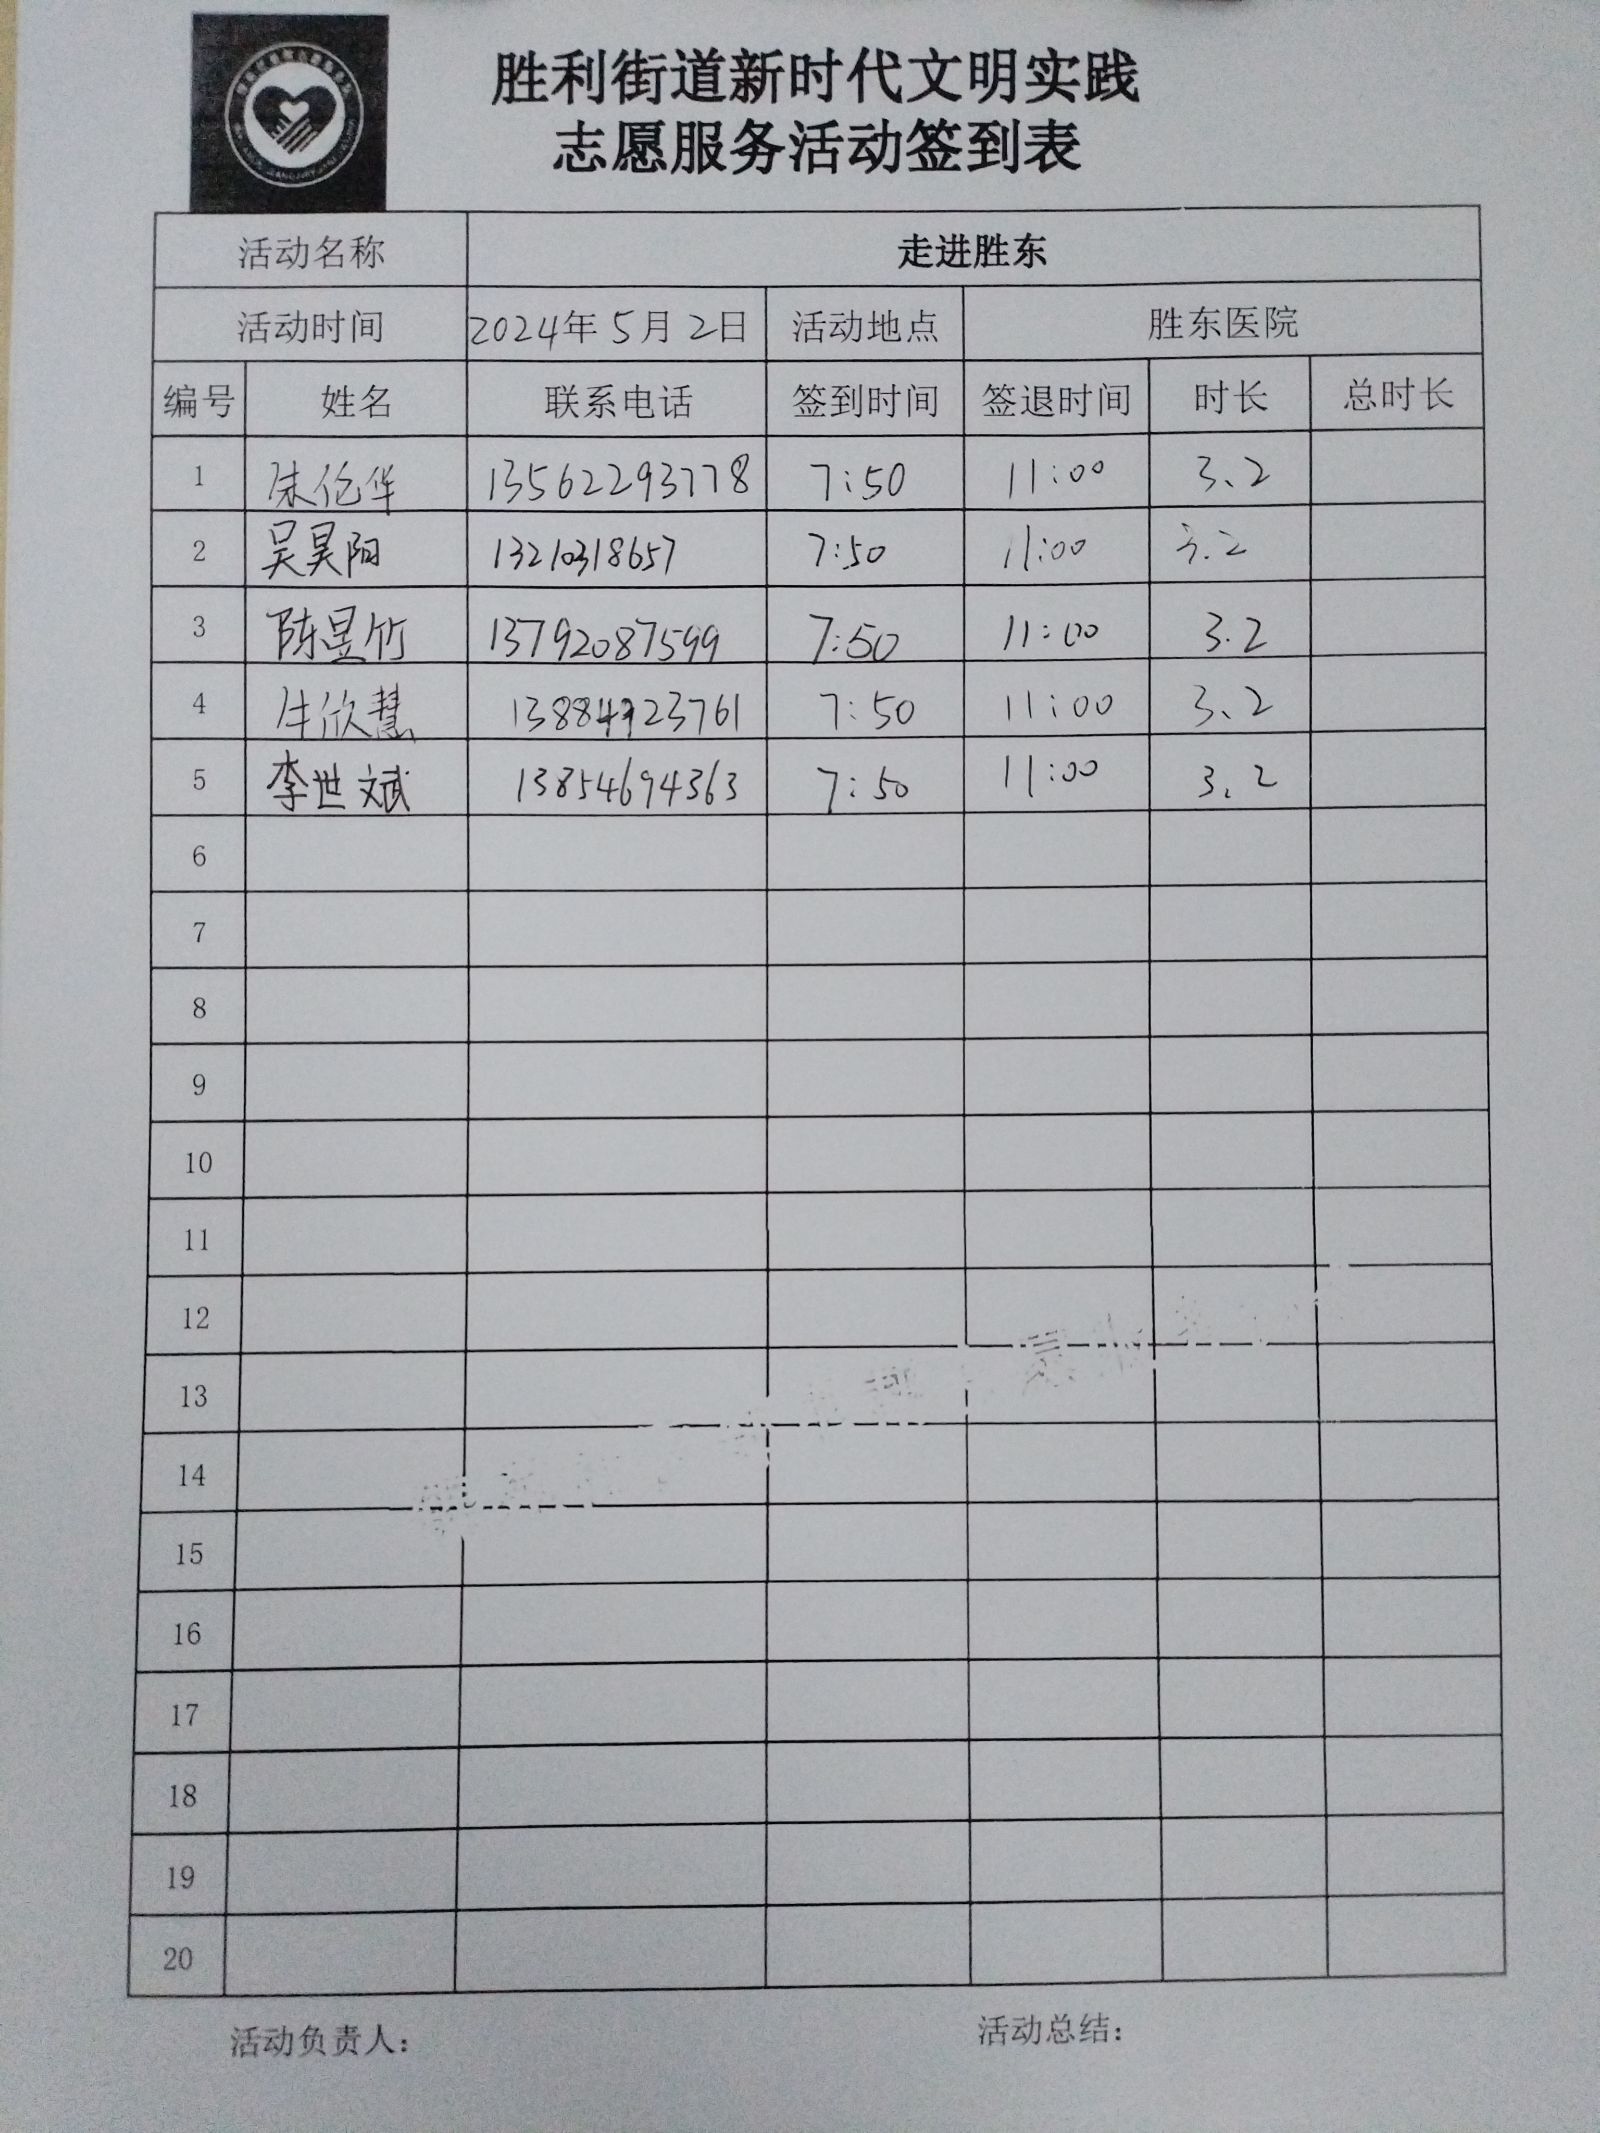 胜利街道新时代文明实践
志愿服务活动签到表
活动名称 走进胜东
活动时间 2024年5月2日 活动地点 胜东医院
编号 姓名 联系电话 签到时间 签退时间 时长 总时长
1 朱伦华 13562293778 7:50 11:00 3、2
2 吴昊阳 13210318657 7:50 11:00 3.2
3 陈昱竹 13792087599 7:50 11:00 3.2
4 牛欣慧 7:50 11:00 3、2
5 李世斌 13854694363 7:50 11:00 3、2
6
7
8
9
10
11
12
13
14
15
16
17
18
19
20
活动负责人： 活动总结：